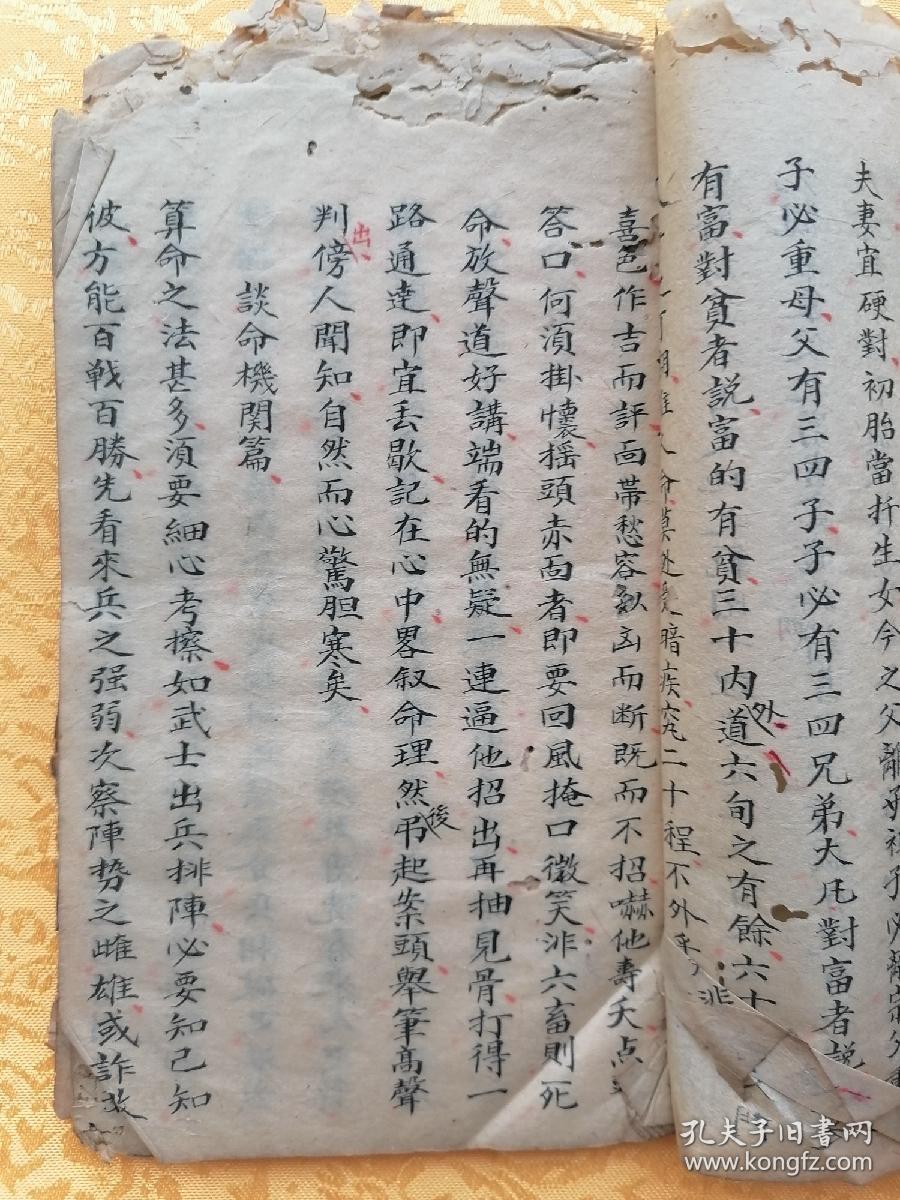 夫妻宜硬對初胎當折生女今之父離
子必重母父有三四子子必有三四兄弟大凡對富者説
有富對貧者説富的有貧三十内外道六旬之有餘六十
暗疾 二十程不外
喜色作吉而評面帶愁容 凶而断既而不招嚇他壽夭点
答口何須掛懷摇頭赤面者即要回風掩口微笑非六畜則死
命放聲道好講端看的無疑一連逼他招出再抽見骨打得一
路通達即宜丢歇記在心中畧叙命理然後弔起案頭舉筆高聲
判出傍人聞知自然而心驚胆寒矣
談命機関篇
算命之法甚多須要細心考擦如武士出兵排陣必要知己知
彼方能百戦百勝先看來兵之强弱次察陣势之雌雄或詐
孔夫子旧書网
www.kongfz.com